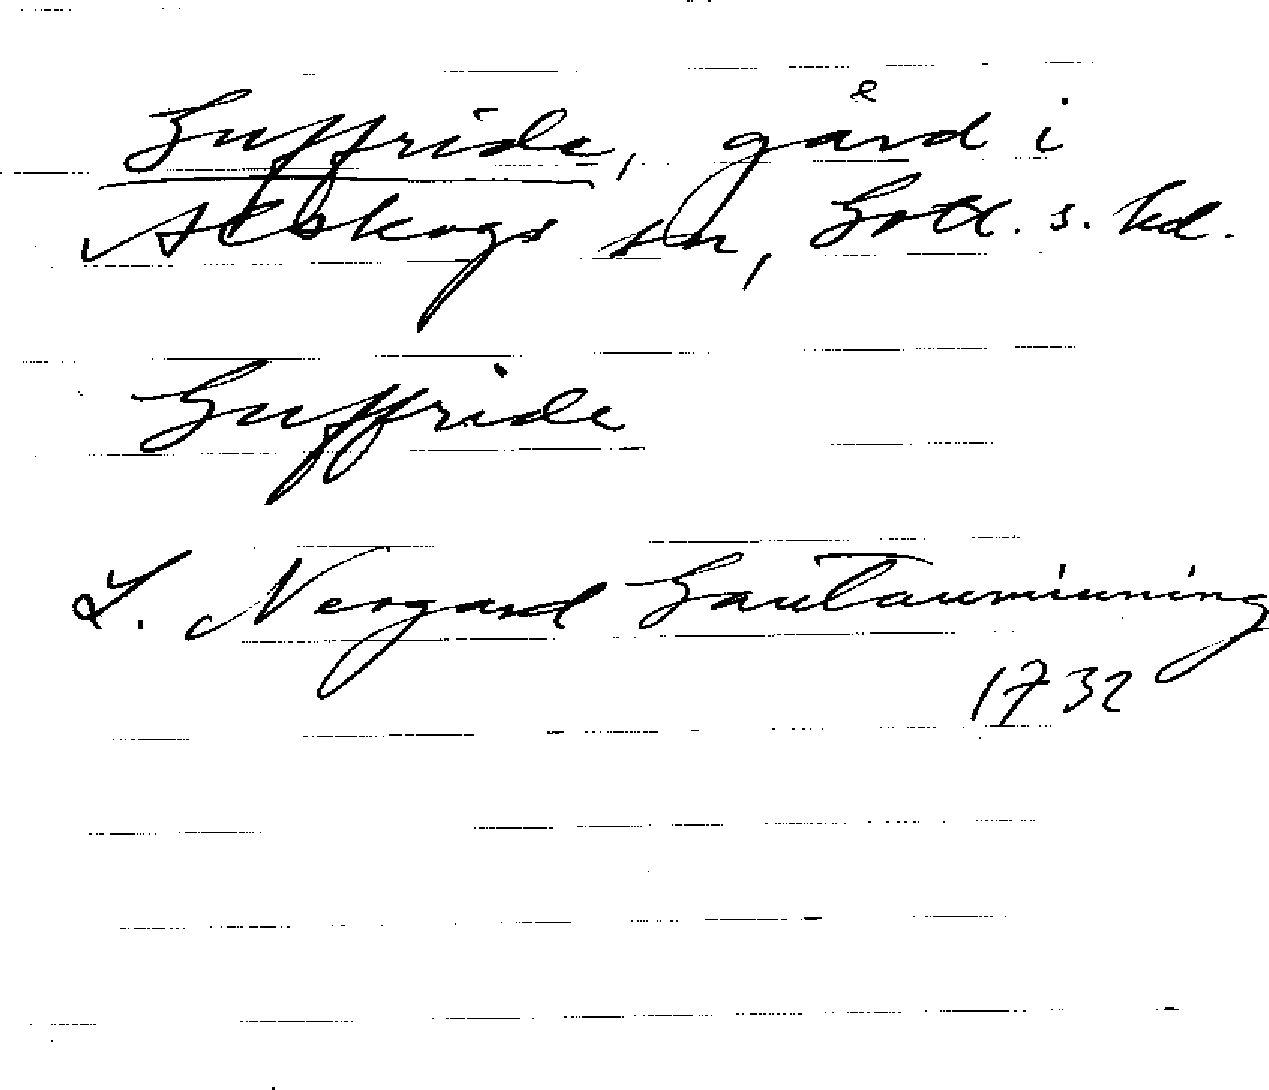 Guffride, gård i
Alskogs sn, Gotl. s. hd.
Guffride
L. Neogard Gautauminning
1732